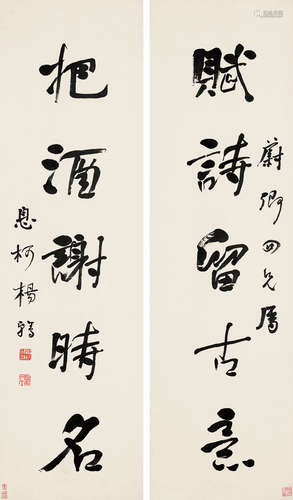 賦詩留古意
蔚卿四兄屬
把酒謝時名
息柯楊翰